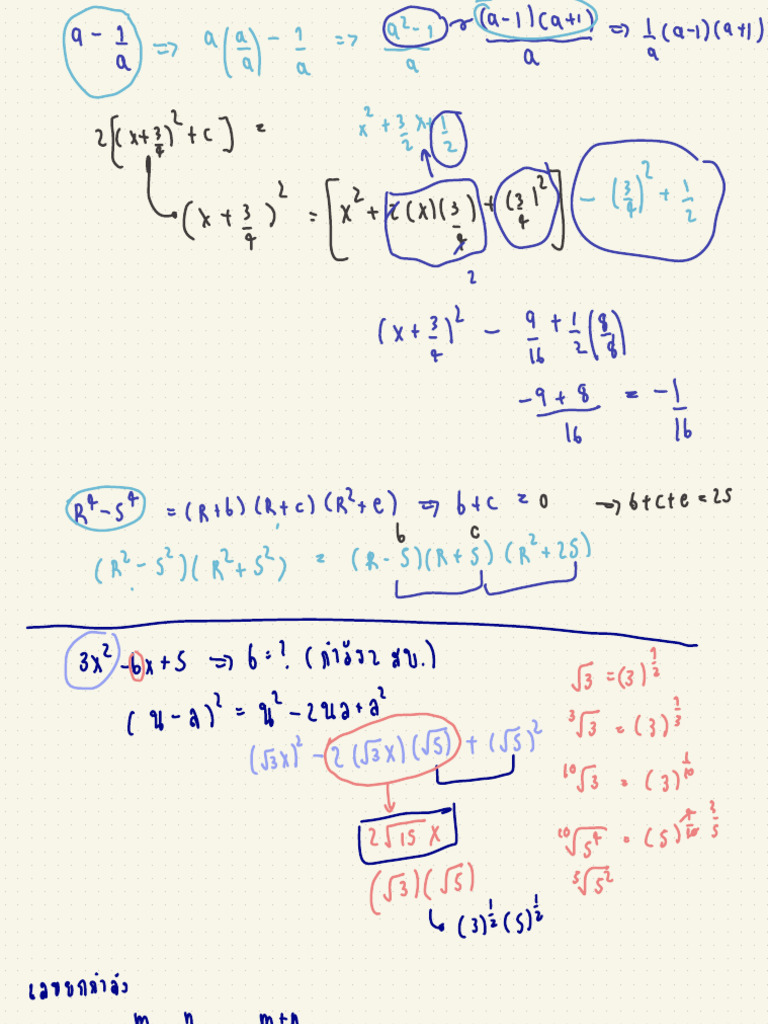 a - 1/a ⇒ a(a/a) - 1/a ⇒ (a²-1)/a ~ (a-1)(a+1)/a ⇒ 1/a (a-1)(a+1)
2[(x+3/4)² + c] = x² + 3/2 x + 1/2
(x + 3/4)² = [x² + 2(x)(3/4) + (3/4)²] - (3/4)² + 1/2
2
(x + 3/4)² - 9/16 + 1/2 (8/8)
(-9 + 8)/16 = -1/16
R⁴ - S⁴ = (R+b)(R+c)(R²+e) ⇒ b+c = 0 → b+c+e = 25
b c
(R² - S²)(R² + S²) = (R - 5)(R + 5)(R² + 25)
3x² - bx + 5 ⇒ b = ?. (กำลัง 2 สบ.)
(น - ล)² = น² - 2นล + ล²
(√3x)² - 2(√3x)(√5) + (√5)²
2√15 x
(√3)(√5)
(3)^1/2 (5)^1/2
√3 = (3)^1/2
³√3 = (3)^1/3
¹⁰√3 = (3)^1/10
¹⁰√5⁴ = (5)^4/10
⁵√5²
เลขยกกำลัง
m n m+n